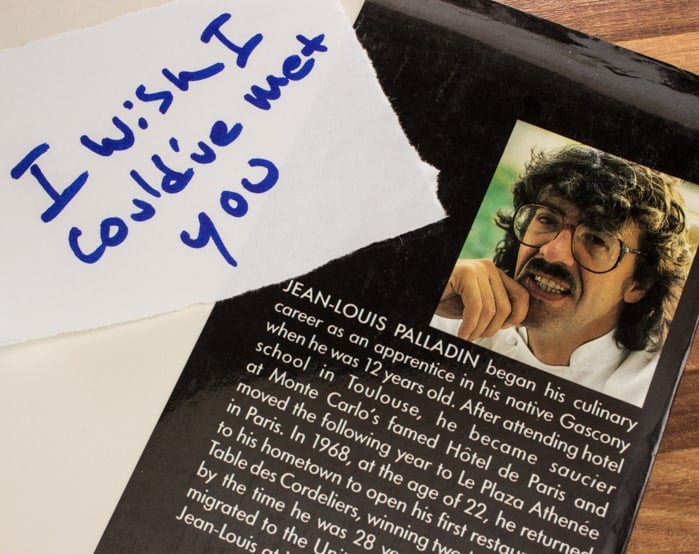 I wish I
could've met
you
JEAN-LOUIS PALLADIN began his culinary
career as an apprentice in his native Gascony
when he was 12 years old. After attending hotel
school in Toulouse, he became saucier
at Monte Carlo's famed Hôtel de Paris and
moved the following year to Le Plaza Athenée
in Paris. In 1968, at the age of 22, he returned
to his hometown to open his first
Table des Cordeliers, winning two
by the time he was 28
migrated to the
Jean-Louis at